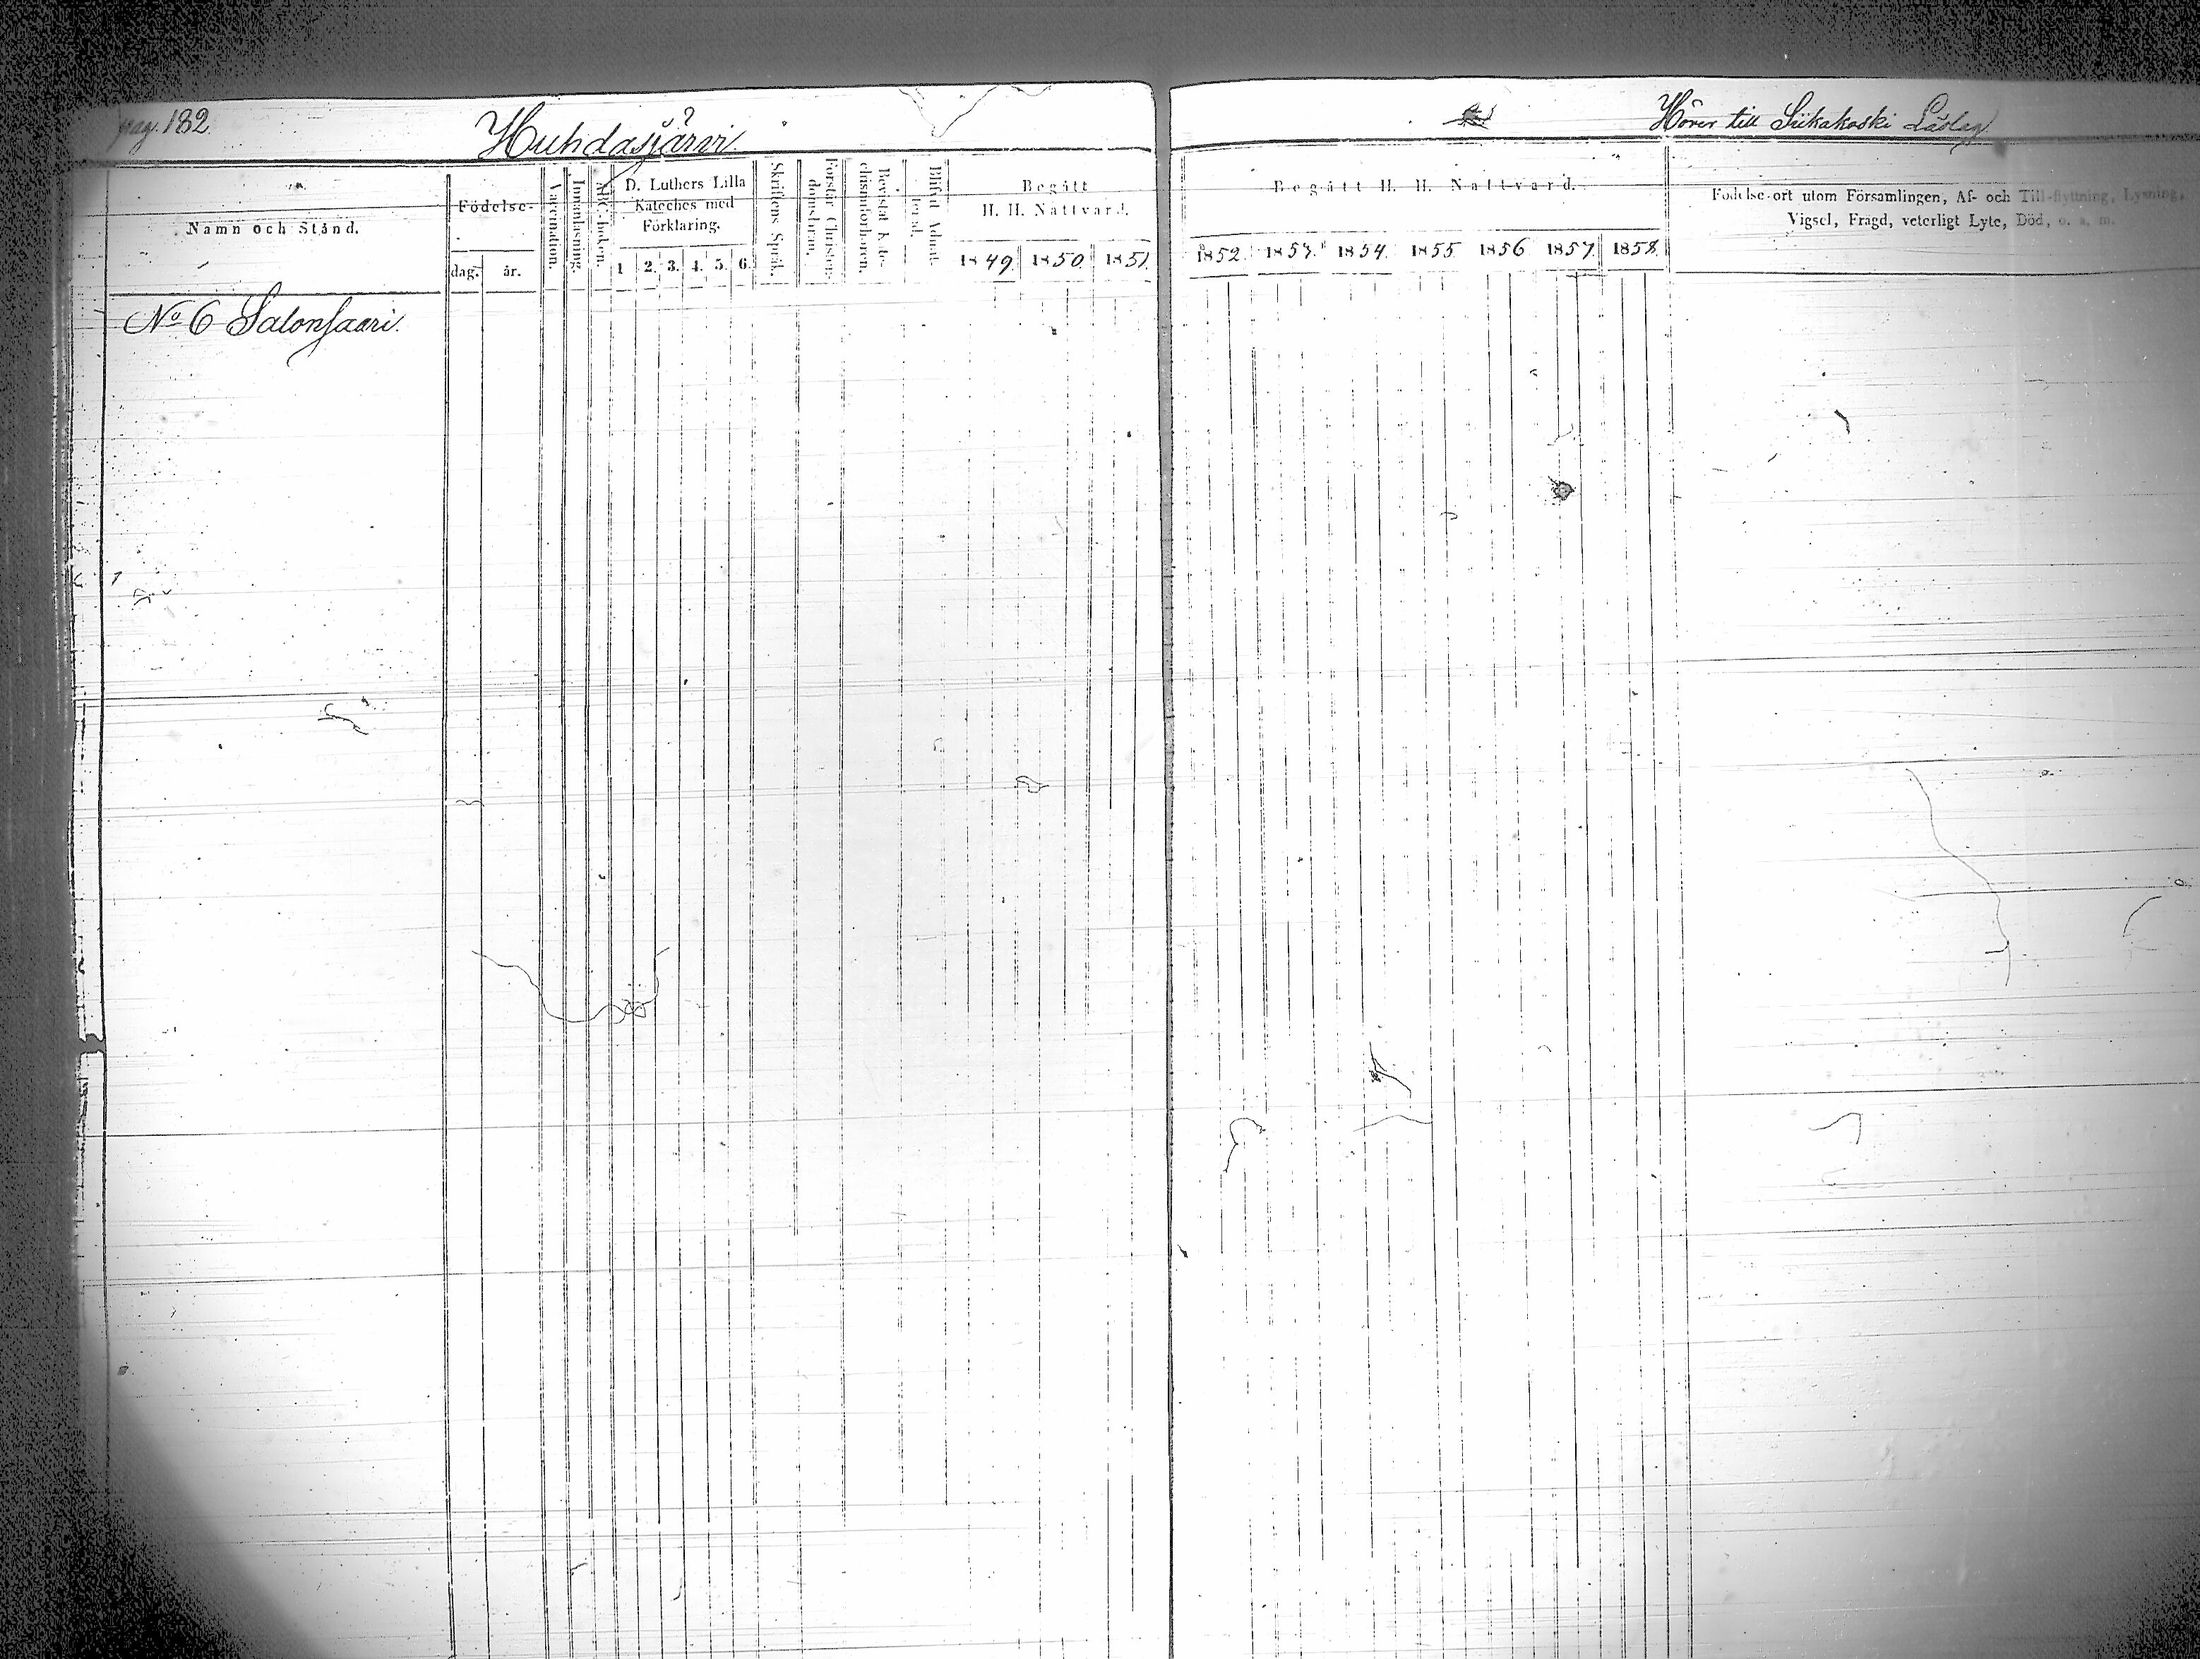 pag. 182.
Huhdasjärvi
Hörer till Siikakoski Läslag
Namn och Stånd.
Födelse-
dag. år.
Vaccination.
Innanläsning.
ABC-boken.
D. Luthers Lilla
Kateches med
Förklaring.
1 2. 3. 4. 5. 6.
Skriftens Språk.
Förstår Christen-
domsläran.
Bevistat Kate-
chismiförhören.
Blifvit Admit-
terad.
Begått
H. H. Nattvard.
1849. 1850. 1851.
Begått H. H. Nattvard.
1852. 1853. 1854. 1855. 1856 1857. 1858.
Födelse-ort utom Församlingen, Af- och Till-flyttning, Lysning,
Vigsel, Frägd, veterligt Lyte, Död, o. a. m.
No 6 Salonsaari.